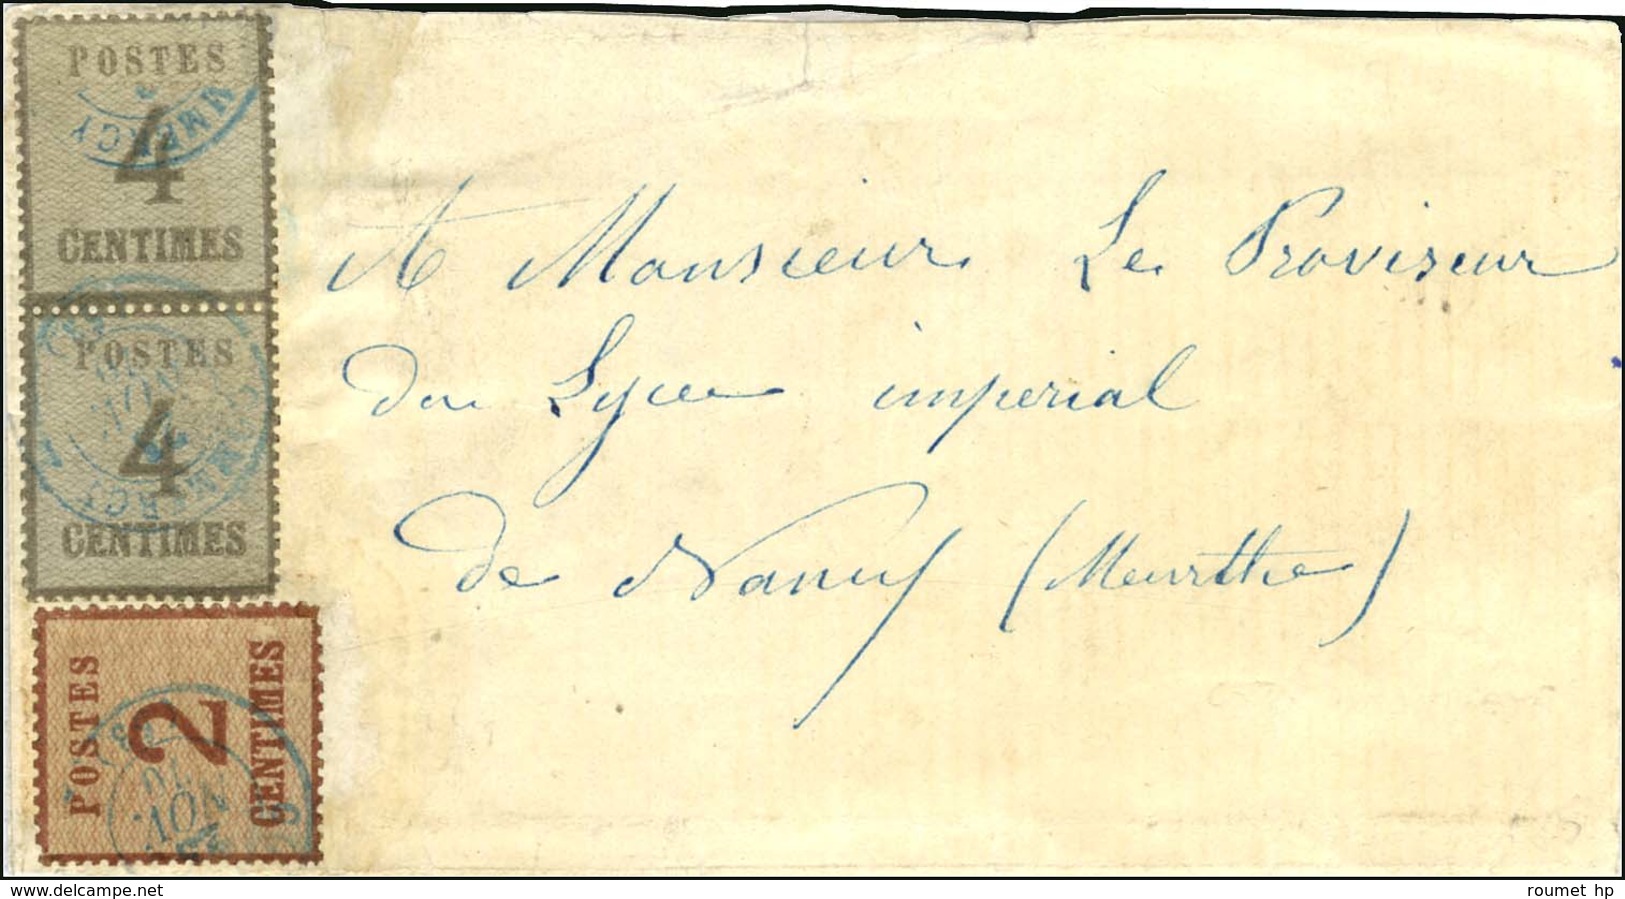 POSTES
4
CENTIMES
POSTES
4
CENTIMES
POSTES
2
CENTIMES
A Monsieur Le Proviseur
du Lycée impérial
de Nancy (Meurthe)
www.delcampe.net
roumet hp